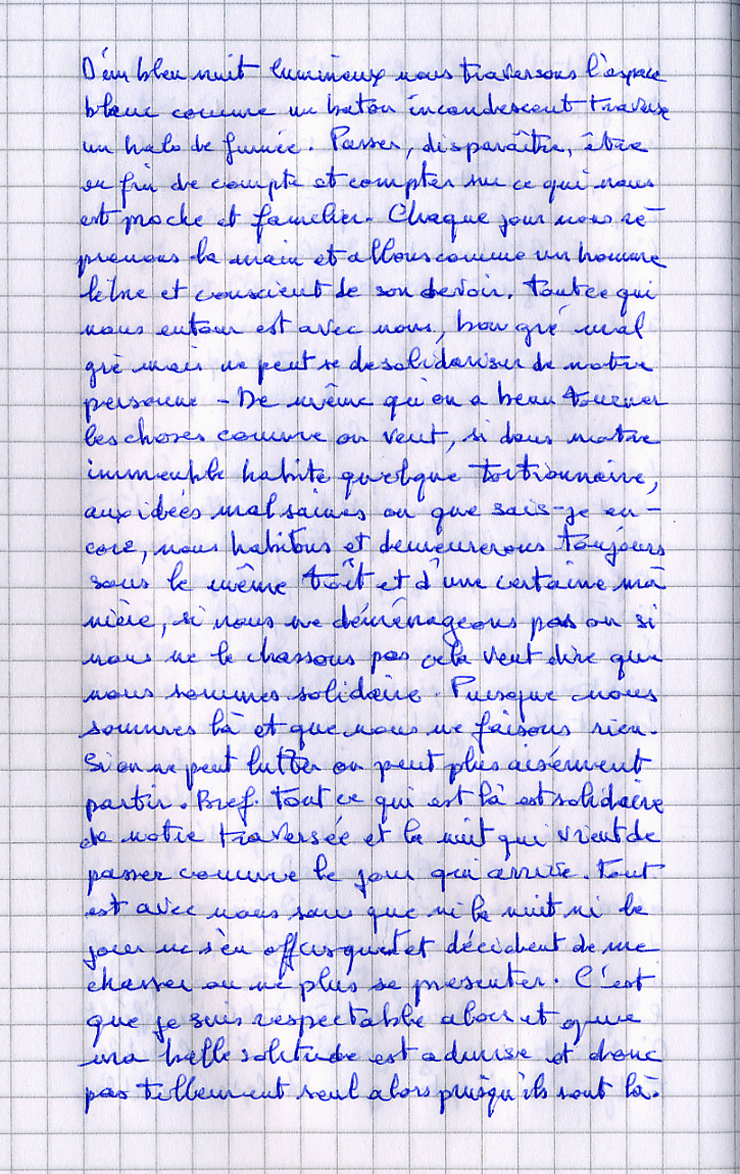 D'un bleu nuit lumineux nous traversons l'espace
blanc comme un baton incandescent traverse
un halo de fumée. Passer, disparaître, être
en fin de compte et compter sur ce qui nous
est proche et familier. Chaque jour nous re-
prenons la main et allons comme un homme
libre et conscient de son devoir. Tout ce qui
nous entour est avec nous, bon gré mal
gré mais ne peut se desolidariser de notre
personne - De même qu'on a beau tourner
les choses comme on veut, si dans notre
immeuble habite quelque tortionnaire,
aux idées malsaines ou que sais-je en-
core, nous habitons et demeurerons toujours
sous le même toît et d'une certaine ma
nière, si nous ne déménageons pas ou si
nous ne le chassons pas cela veut dire que
nous sommes solidaire. Puisque nous
sommes là et que nous ne faisons rien.
Si on ne peut lutter on peut plus aisément
partir. Bref. Tout ce qui est là est solidaire
de notre traversée et la nuit qui vient de
passer comme le jour qui arrive. Tout
est avec nous sans que ni la nuit ni le
jour ne s'en offusquent et décident de me
chasser ou ne plus se presenter. C'est
que je suis respectable alors et que
ma belle solitude est admise et donc
pas tellement seul alors puisqu'ils sont là.